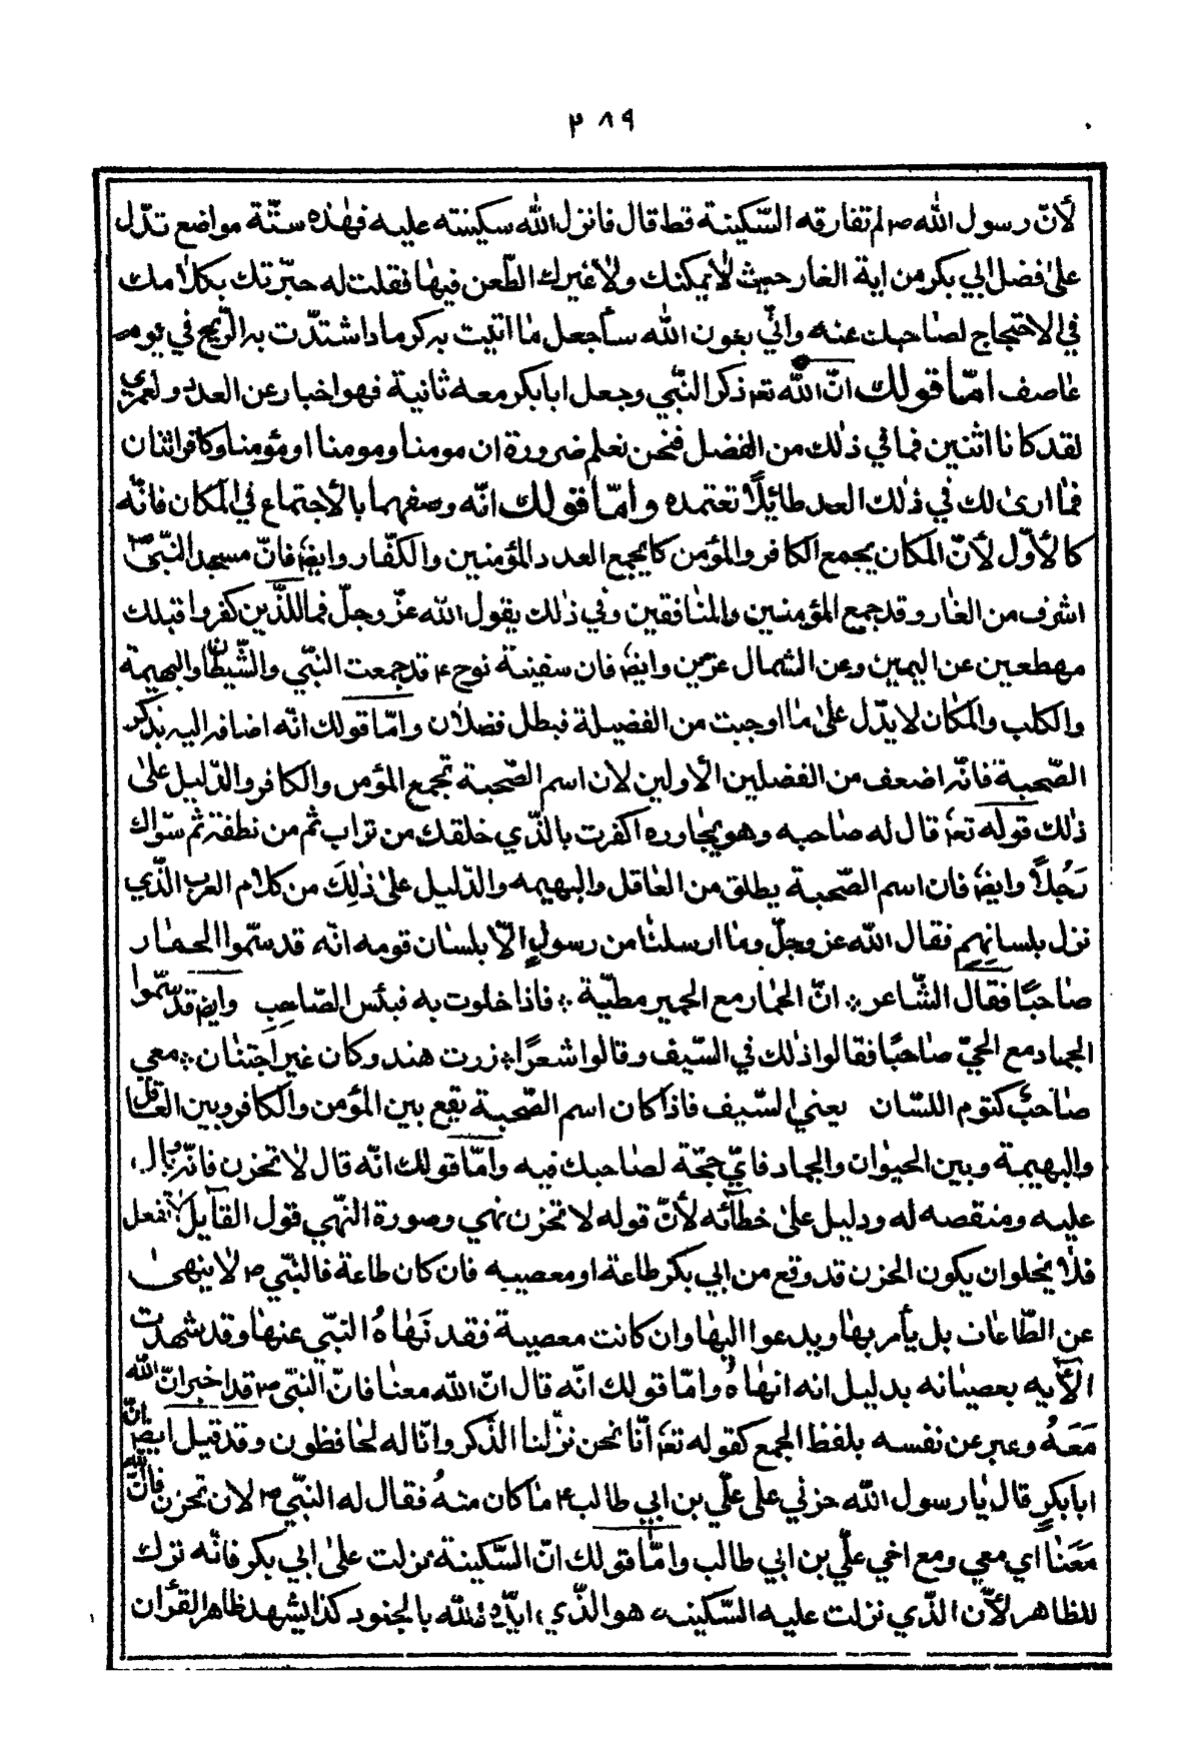 ٢٨٩
لأنّ رسول الله ص لم تفارقه السّكينة قط قال فانزل الله سكينته عليه فهذه ستّة مواضع تدّل
على فضل ابي بكر من اية الغار حيث لا يمكنك ولا غيرك الطّعن فيها فقلت له حبّرتك بكلامك
في الاحتجاج لصاحبك عنه وانّي بعون الله سأجعل ما اتيت به كرماد اشتدّت به الرّيح في يوم
عاصف امّا قولك انّ الله تع ذكر النّبي وجعل ابابكر معه ثانية فهو اخبار عن العدد ولعمري
لقد كانا اثنين فما في ذلك من الفضل فنحن نعلم ضرورة ان مومنا ومومنا او مؤمنا وكافر اثنان
فما ارى لك في ذلك العد طائلًا تعتمده وامّا قولك انّه وصفهما بالأجتماع في المكان فانّه
كالأوّل لأنّ المكان يجمع الكافر والمؤمن كما يجمع العدد المؤمنين والكفّار وايض فانّ مسجد النّبي ص
اشرف من الغار وقد جمع المؤمنين والمنافقين وفي ذلك يقول الله عزّ وجلّ فما للذّين كفروا قبلك
مهطعين عن اليمين وعن الشمال عزين وايض فان سفينة نوح ع قد جمعت النبّي والشّيطان والبهيمة
والكلب والمكان لا يدّل على ما اوجبت من الفضيلة فبطل فضلان وامّا قولك انّه اضافه اليه بذكر
الصّحبة فانّه اضعف من الفضلين الأولين لان اسم الصّحبة تجمع المؤمن والكافر والدّليل على
ذلك قوله تع قال له صاحبه وهو يحاوره اكفرت بالذّي خلقك من تراب ثم من نطفة ثم سوّاك
رَجُلاً وايض فان اسم الصّحبة يطلق من العاقل والبهيمه والدّليل على ذلِكَ من كلام العرب الذّي
نزل بلسانِهِم فقال الله عز وجلّ وما ارسلنا من رسولٍ الّا بلسان قومه انّه قد سمّوا الحمار
صاحبًا فقال الشّاعر ؞ انّ الحمار مع الحمير مطيّة ؞ فاذا خلوت به فبئس الصّاحِبِ وايض قد سمّوا
الجماد مع الحيّ صاحبًا فقالوا ذلك في السّيف وقالوا شعرًا ؞ زرت هند وكان غير اجتنان ؞ معي
صاحبٌ كتوم اللسّان يعني السّيف فاذا كان اسم الصّحبة يقع بين المؤمن والكافر وبين العاقل
والبهيمة وبين الحيوان والجماد فايّ حجّة لصاحبك فيه وامّا قولك انّه قال لا تحزن فانّه وبال
عليه ومنقصه له ودليل على خطآئه لأنّ قوله لا تحزن نهي وصورة النّهي قول القآيل لا تفعل
فلا يخلوا ان يكون الحزن قد وقع من ابي بكر طاعة او معصيه فان كان طاعة فالنبّي ص لا ينهى
عن الطّاعات بل يأمر بها ويدعوا اليها وان كانت معصية فقد نَهَاهُ النبّي عنها وقد شهدت
الآيه بعصيانه بدليل انه انهاهُ وامّا قولك انّه قال انّ الله معنا فانّ النبّي ص قد اخبر انّ الله
مَعَهُ وعبر عن نفسه بلفظ الجمع كقوله تع انّا نحن نزّلنا الذّكر وانّا له لحافظون وقد قيل ايض انّ
ابابكرٍ قال يا رسول الله حزني على علّي بن ابي طالب ع ما كان منهُ فقال له النبّي ص لان تحزن فانّ الله
مَعَنا اي معي ومع اخي علّي بن ابي طالب وامّا قولك انّ السّكينة نزلت على ابي بكر فانّه ترك
للظاهر لأنّ الذّي نزلت عليه السّكينه هو الذّي ايدّه الله بالجنود كذا يشهد ظاهر القرأن